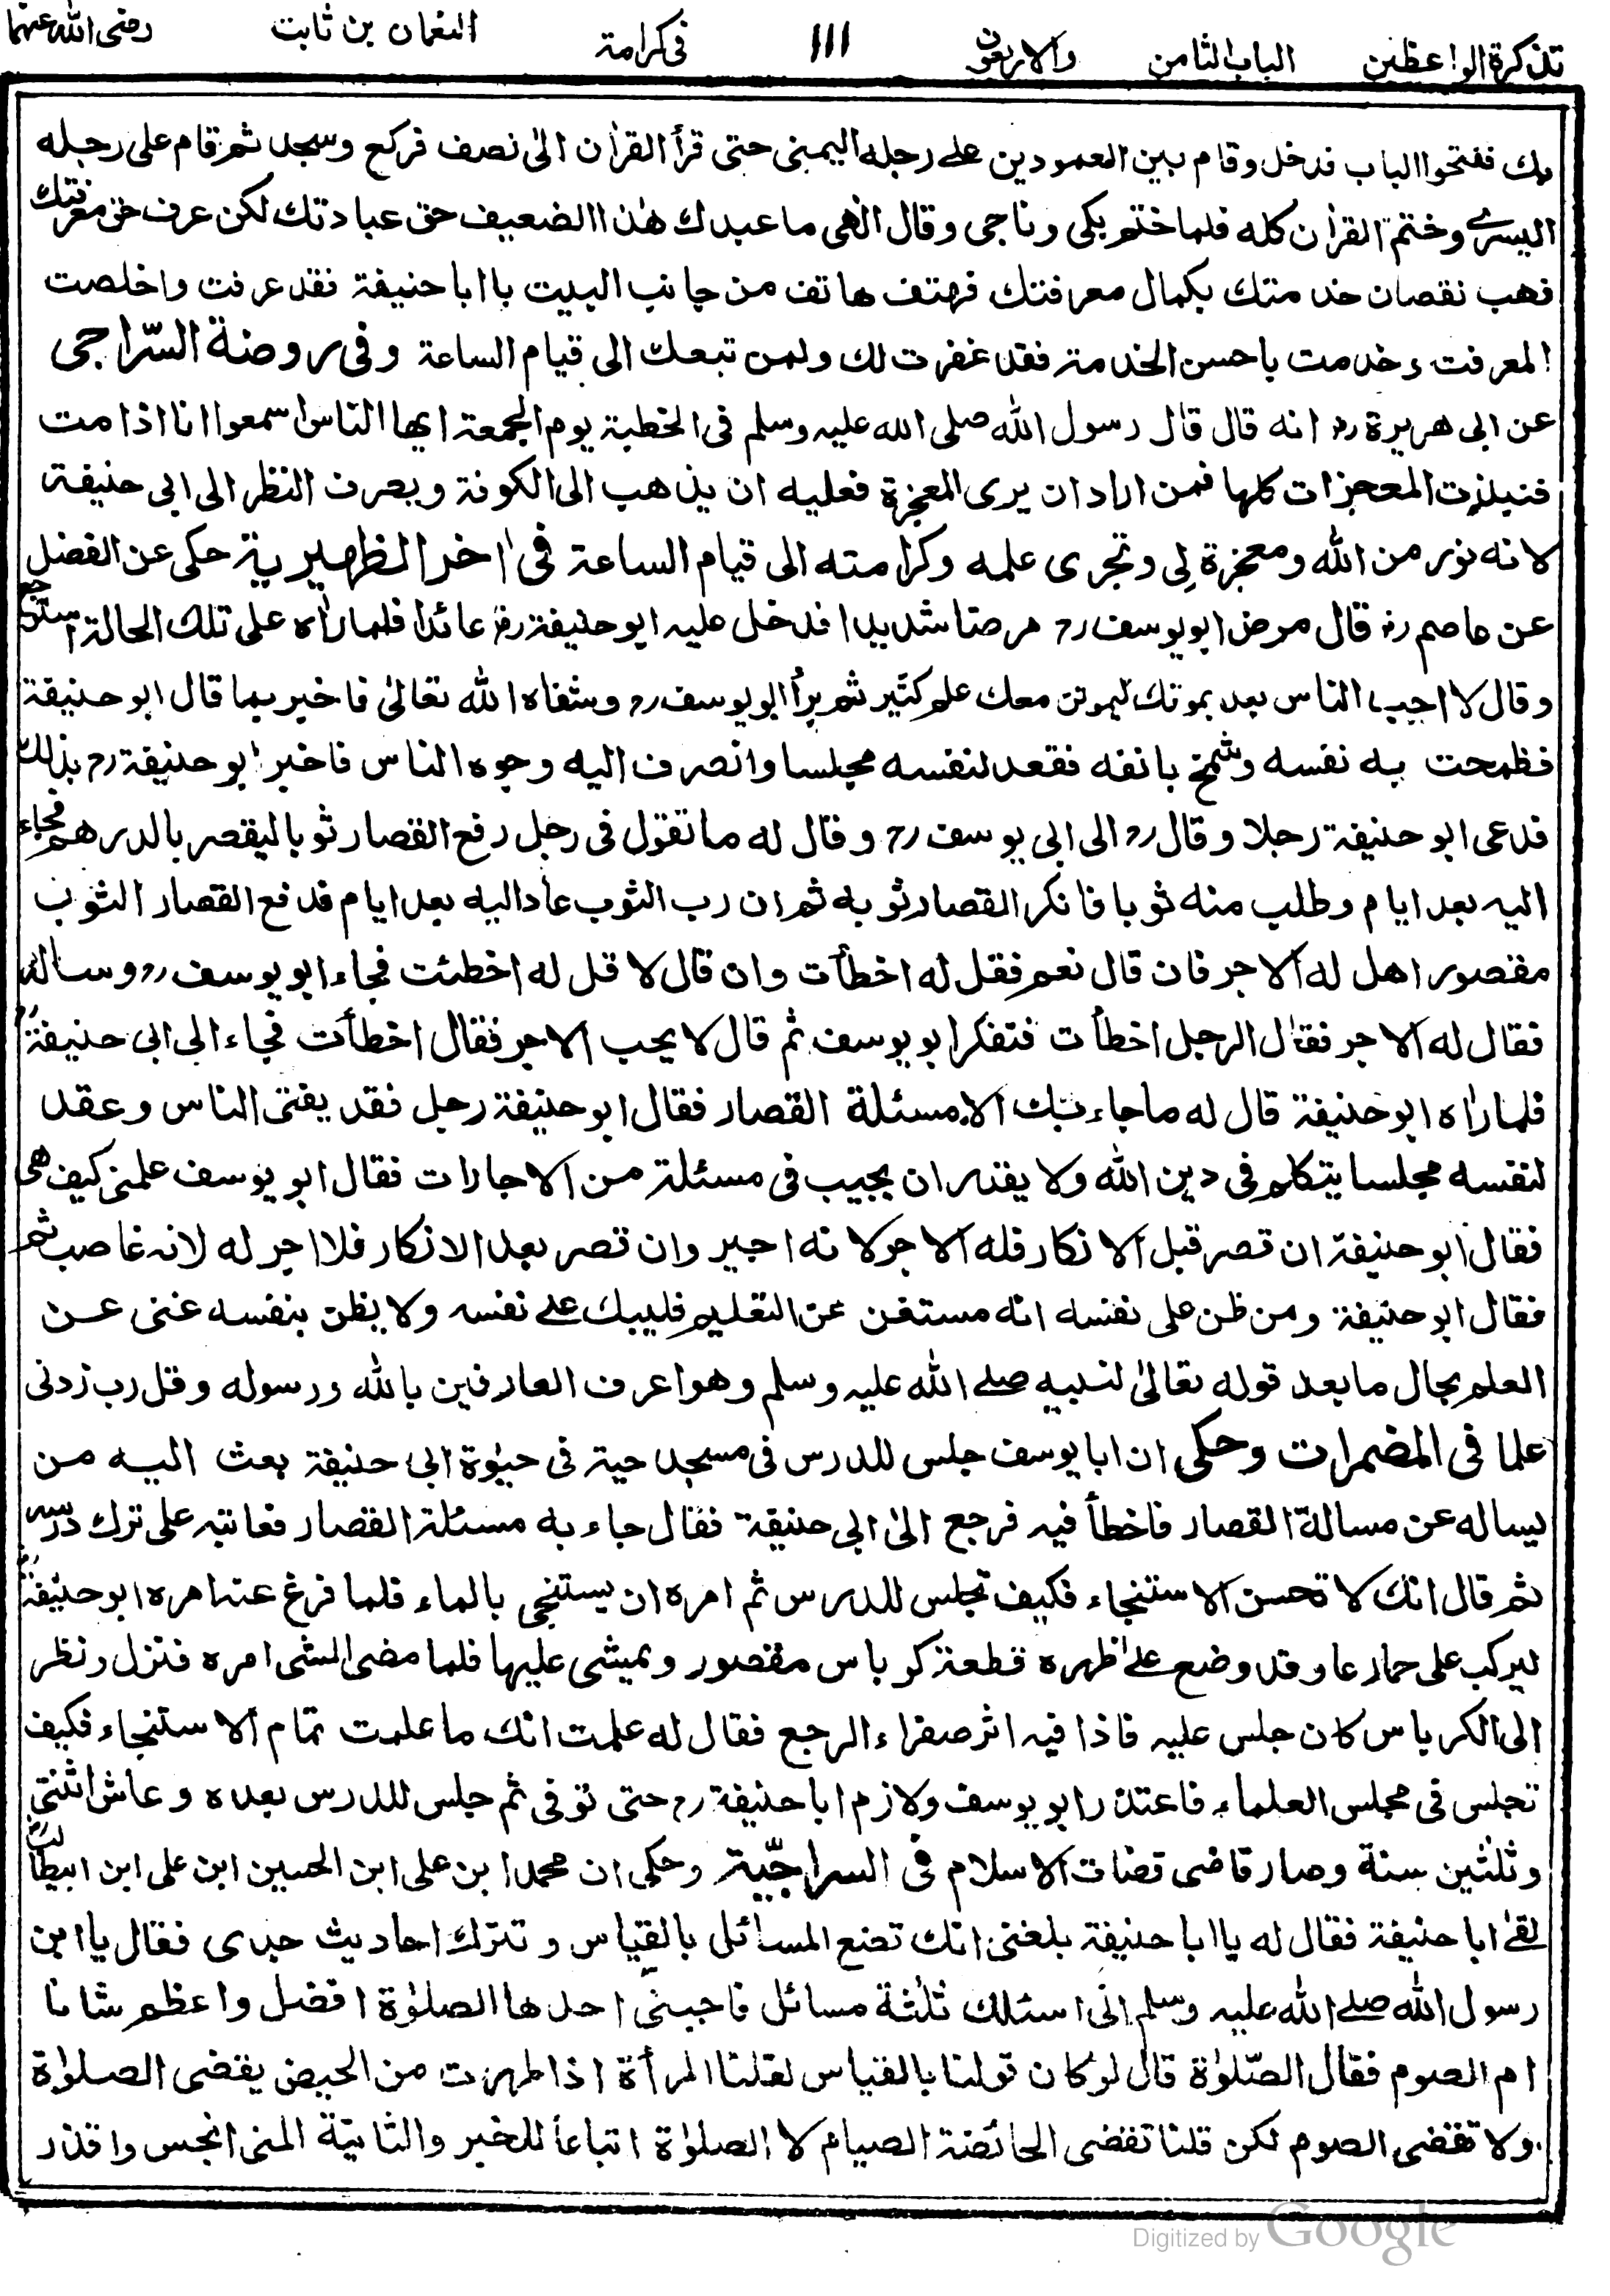 تذكرة الواعظين الباب الثامن والاربعون ١١١ فى كرامة النعمان بن ثابت رضى الله عنهما
بك ففتحوا الباب فدخل وقام بين العمودين على رجله اليمنى حتى قرأ القرآن الى نصف فركع وسجد ثم قام على رجله
اليسرے وختم القرآن كله فلما ختم بكى وناجى وقال الٰهى ما عبدك هٰذا الضعيف حق عبادتك لكن عرف حق معرفتك
فهب نقصان خدمتك بكمال معرفتك فهتف هاتف من جانب البيت يا ابا حنيفة فقد عرفت واخلصت
المعرفت وخدمت باحسن الخدمة فقد غفرت لك ولمن تبعك الى قيام الساعة وفى روضة السّراجى
عن ابى هريرة رض انه قال قال رسول الله صلى الله عليه وسلم فى الخطبة يوم الجمعة ايها الناس اسمعوا انا اذا مت
المعجزات كلها فمن اراد ان يرى المعجزة فعليه ان يذهب الى الكوفة ويصرف النظر الى ابى حنيفة
لانه نور من الله ومعجزة لى وتجرى علمه وكرامته الى قيام الساعة فى اٰخر الظهيرية حكى عن الفضل
عن عاصم رض قال مرض ابو يوسف رح مرضا شديدا فدخل عليه ابو حنيفة رض عائدا فلما راٰه على تلك الحالة استرجع
وقال لا اجب الناس بعد بموتك ليموتن معك علم كثير ثم برأ ابو يوسف رح وشفاه الله تعالىٰ فاخبر بما قال ابو حنيفة
فطمحت به نفسه وشمخ بانفه فقعد لنفسه مجلسا وانصرف اليه وجوه الناس فاخبر ابو حنيفة رح بذلك
فدعى ابو حنيفة رجلا وقال رح الى ابى يوسف رح وقال له ما تقول فى رجل رفع القصار ثوبا ليقصر بالدرهم فجاء
اليه بعد ايام وطلب منه ثوبا فانكر القصار ثوبه ثم ان رب الثوب عاد اليه بعد ايام فدفع القصار الثوب
مقصورا هل له الاجر فان قال نعم فقل له اخطأت وان قال لا قل له اخطئت فجاء ابو يوسف رح وساله
فقال له الاجر فقال الرجل اخطأت فتفكر ابو يوسف ثم قال لا يجب الاجر فقال اخطأت فجاء الى ابى حنيفة رح
فلما راٰه ابو حنيفة قال له ما جاء بك الا مسئلة القصار فقال ابو حنيفة رجل فقد يفتى الناس وعقد
لنفسه مجلسا يتكلم فى دين الله ولا يقدر ان يجيب فى مسئلة من الاجارات فقال ابو يوسف علمنى كيف هى
فقال ابو حنيفة ان قصر قبل الانكار فله الاجر لانه اجير وان قصر بعد الانكار فلا اجر له لانه غاصب ثم
فقال ابو حنيفة ومن ظن على نفسه انه مستغن عن التعليم فليبك على نفسه ولا يظن بنفسه غنى عن
العلم بحال ما بعد قوله تعالىٰ لنبيه صلے الله عليه وسلم وهو اعرف العارفين بالله ورسوله وقل رب زدنى
علما فى المضمرات وحكى ان ابا يوسف جلس للدرس فى مسجد حية فى حيٰوة ابى حنيفة بعث اليه من
يساله عن مسالة القصار فاخطأ فيه فرجع الىٰ ابى حنيفة فقال جاء به مسئلة القصار فعاتبه على ترك درسه
ثم قال انك لا تحسن الاستنجاء فكيف تجلس للدرس ثم امره ان يستنجى بالماء فلما فرغ عنه امره ابو حنيفة رح
ليركب على حمار عار وقد وضع علىٰ ظهره قطعة كرباس مقصور ويمشى عليها فلما مضى المشى امره فنزل ونظر
الى الكرباس كان جلس عليه فاذا فيه اثر صفراء الرجع فقال له علمت انك ما علمت تمام الاستنجاء فكيف
تجلس فى مجلس العلماء فاعتذر ابو يوسف ولازم ابا حنيفة رح حتى توفى ثم جلس للدرس بعده وعاش اثنتى
وثلٰثين سنة وصار قاضى قضات الاسلام فى السراجيّة وحكى ان محمدا بن على ابن الحسين ابن على ابن ابيطالب رض
لقىٰ ابا حنيفة فقال له يا ابا حنيفة بلغنى انك تضع المسائل بالقياس وتترك احاديث جدى فقال يا ابن
رسول الله صلے الله عليه وسلم انى اسئلك ثلٰثة مسائل فاجبنى احدها الصلوٰة افضل واعظم شانا
ام الصوم فقال الصّلوٰة قال لو كان قولنا بالقياس لقلنا المرأة اذا طهرت من الحيض يقضى الصلوٰة
ولا تقضى الصوم لكن قلنا تقضى الحائضة الصيام لا الصلوٰة اتباعاً للخبر والثانية المنى انجس واقذر
Digitized by Google